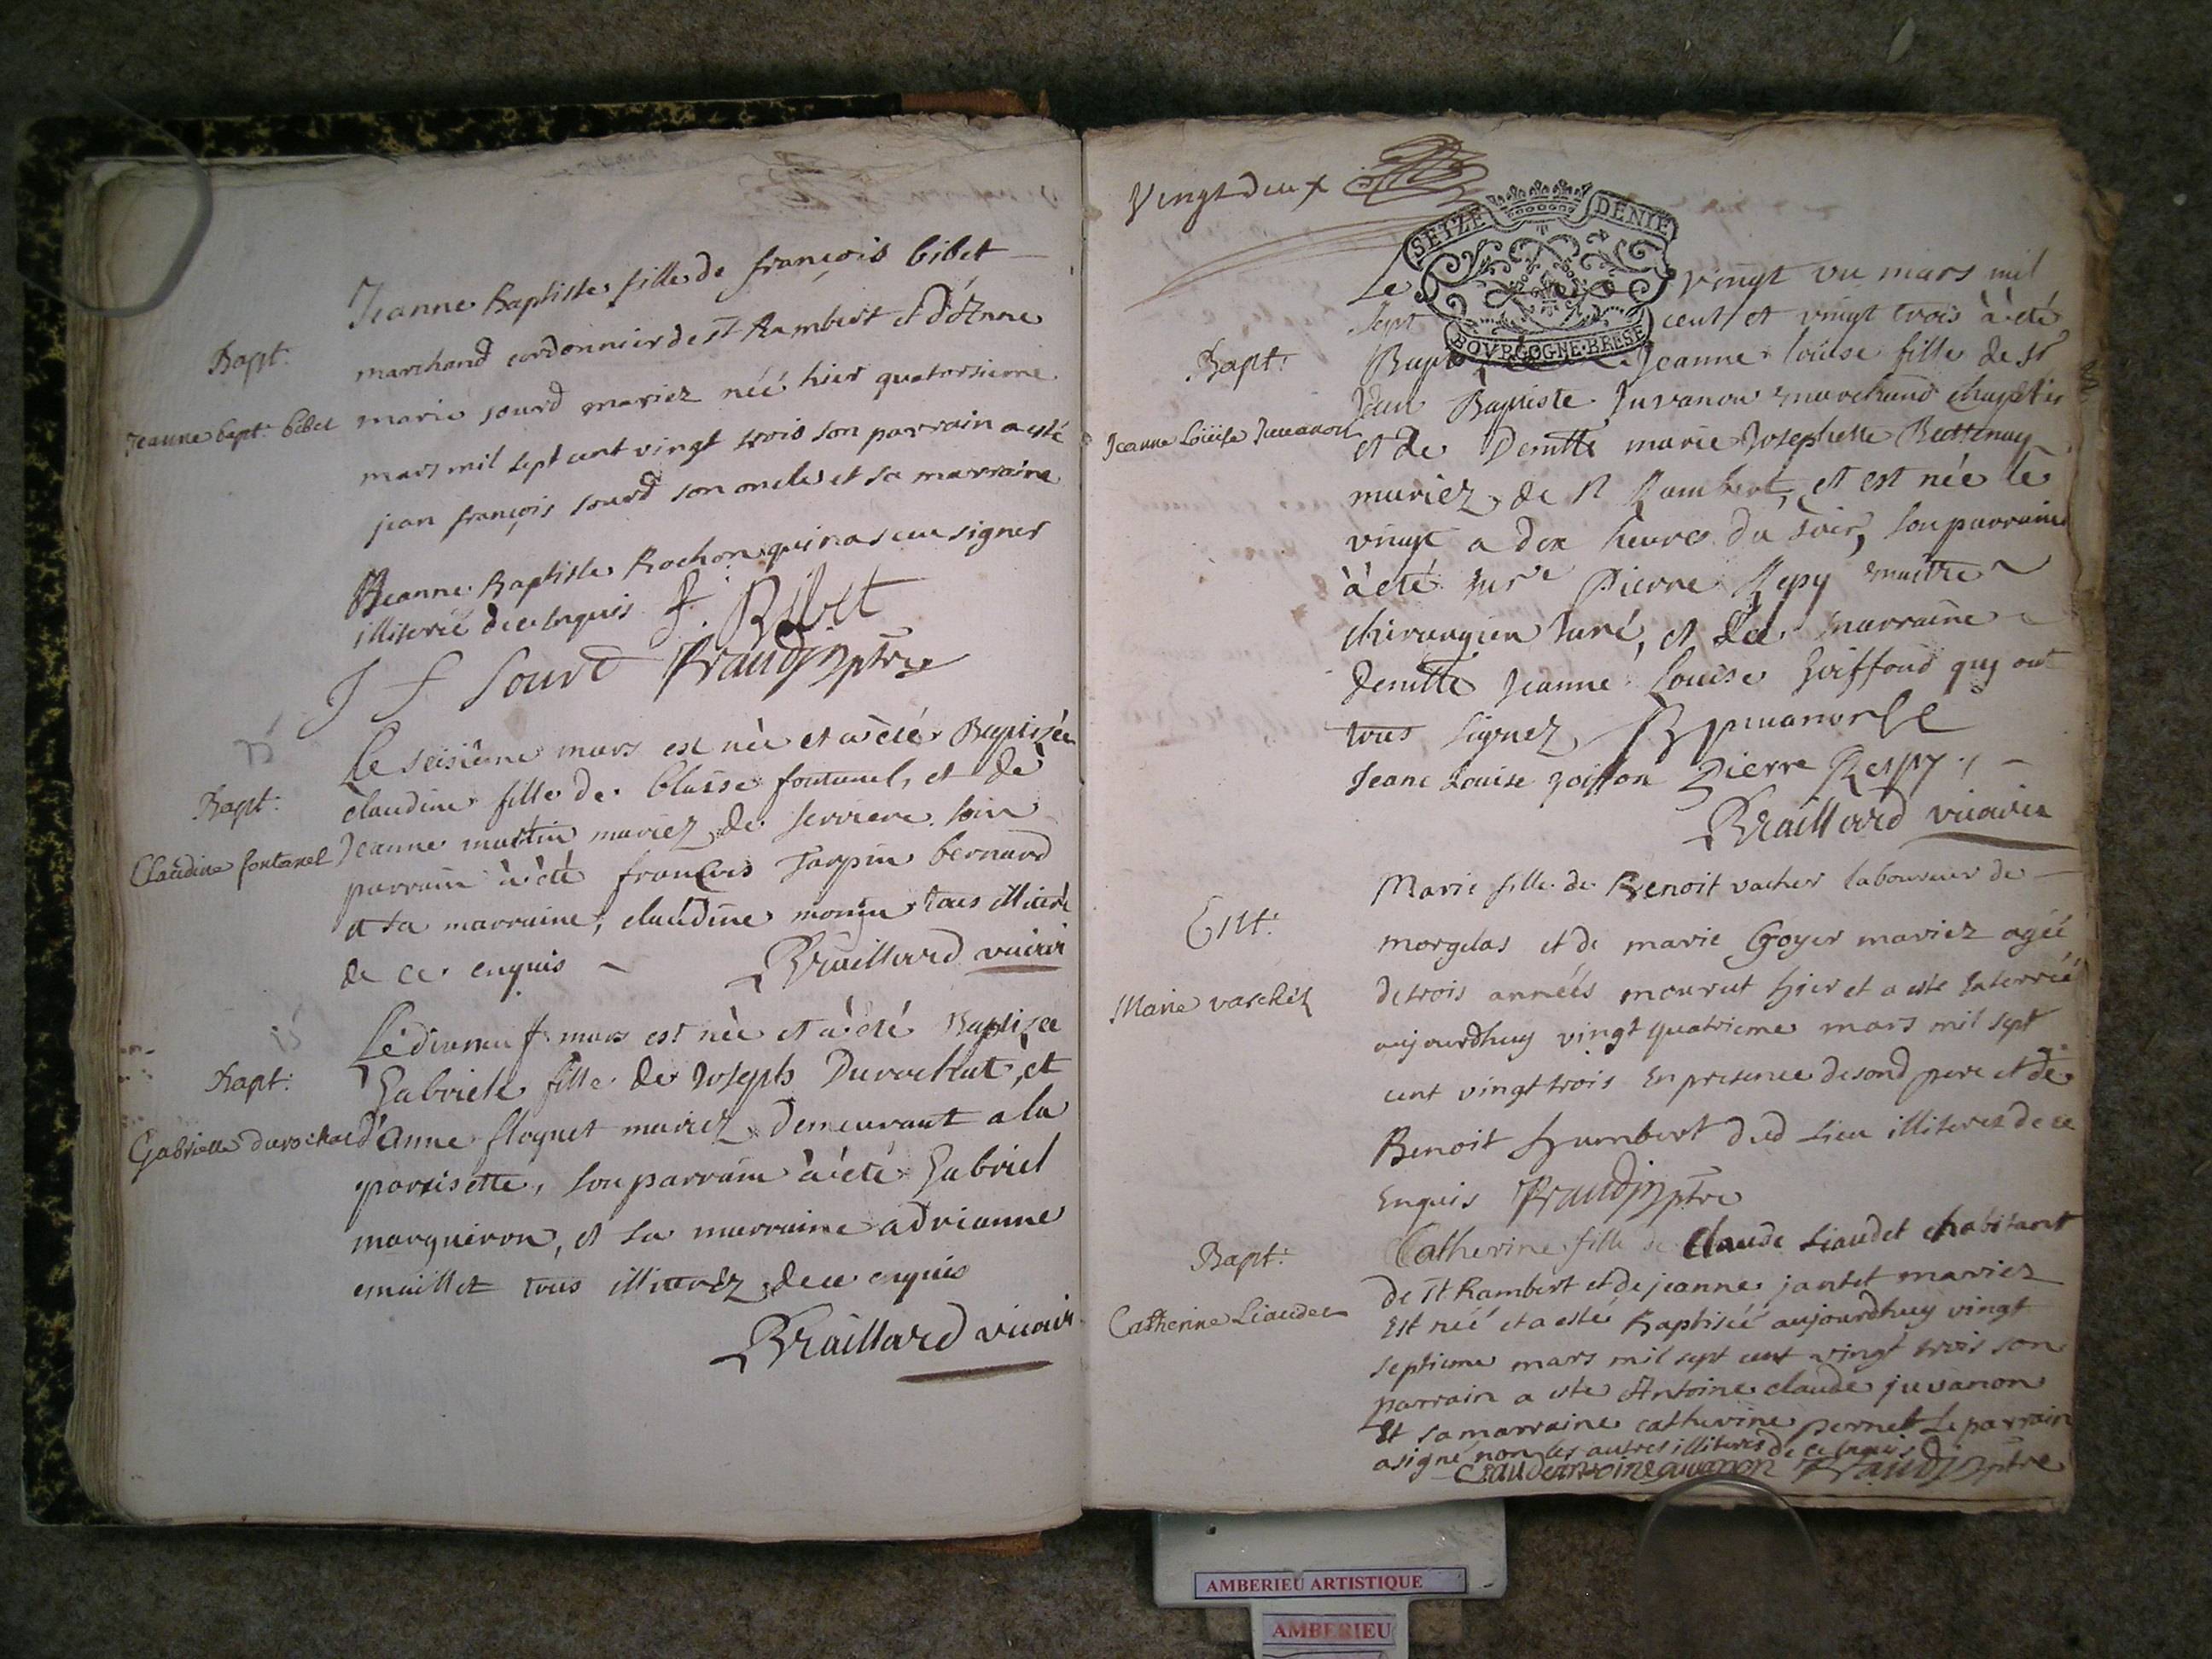 Bapt:
Jeanne bapt: bibet
Jeanne Baptiste fille de françois bibet
marchand cordonnier de st Rambert et d'Anne
marie sourd mariez néé hier quatorsieme
mars mil sept cent vingt trois son parrain a esté
jean françois sourd son oncle et sa marraine
Jeanne Baptiste Rochon qui na sceu signer
illiteréé de ce enquis F. Bibet
J f Sourd Praudin ptre
Bapt:
Claudine fontanel
Le seisiéme mars est née et a été Baptisée
claudine fille de blaise fontanel, et de
Jeanne martin mariez de serriere son
parrain à été françois Tarpin bernard
et sa marraine, claudine monin tous illiteré
de ce enquis Braillard vicair
Bapt:
Gabrielle durochat
Le dixneuf mars est née et a été Baptizée
Gabriele fille de Joseph Durochat, et
d'anne floquet mariez demeurant a la
parrisette, son parrain à été Gabriel
marguiron, et sa marraine adrianne
emaillet tous illiterez de ce enquis
Braillard vicair
Vingt deux
SEIZE DENIE
BOVRGOGNE·BRESSE
Bapt:
Jeanne Loüise Juuanon
Le vingt un mars mil
sept cent et vingt trois à été
Bapt Jeanne loüise fille de sr
Jean Baptiste Juvanon marchand chapelier
et de Demlle marie Josephelle
mariez de st Rambert, et est née le
vingt a dix heures du soir, son parrain
à été Pierre Repy maitre
chirurgien Juré, et sa marraine
Demlle Jeanne Louise goiffond quy ont
tous signez
Jeane Louise goiffon Pierre Respy
Braillard vicaire
Ent:
Marie vaschér
Marie fille de Benoit vacher laboureur de
morgelas et de marie Goyer mariez agéé
de trois annéés mourut hier et a esté Enterréé
aujourdhuy vingt quatrieme mars mil sept
cent vingt trois En presence de sond pere et de
Benoit humbert dud lieu illiterez de ce
Enquis Praudin ptre
Bapt:
Catherine Liaudet
Catherine fille de Claude Liaudet habitant
de st Rambert et de jeanne jantet mariez
Est néé et a esté Baptiséé aujourdhuy vingt
septieme mars mil sept cent vingt trois son
parrain a esté Antoine claude juvanon
Et sa marraine catherine pernet Le parrain
a signé non les autres illiterez de ce Enquis
Claudeantoineguvanon Praudin ptre
AMBERIEU ARTISTIQUE
AMBERIEU